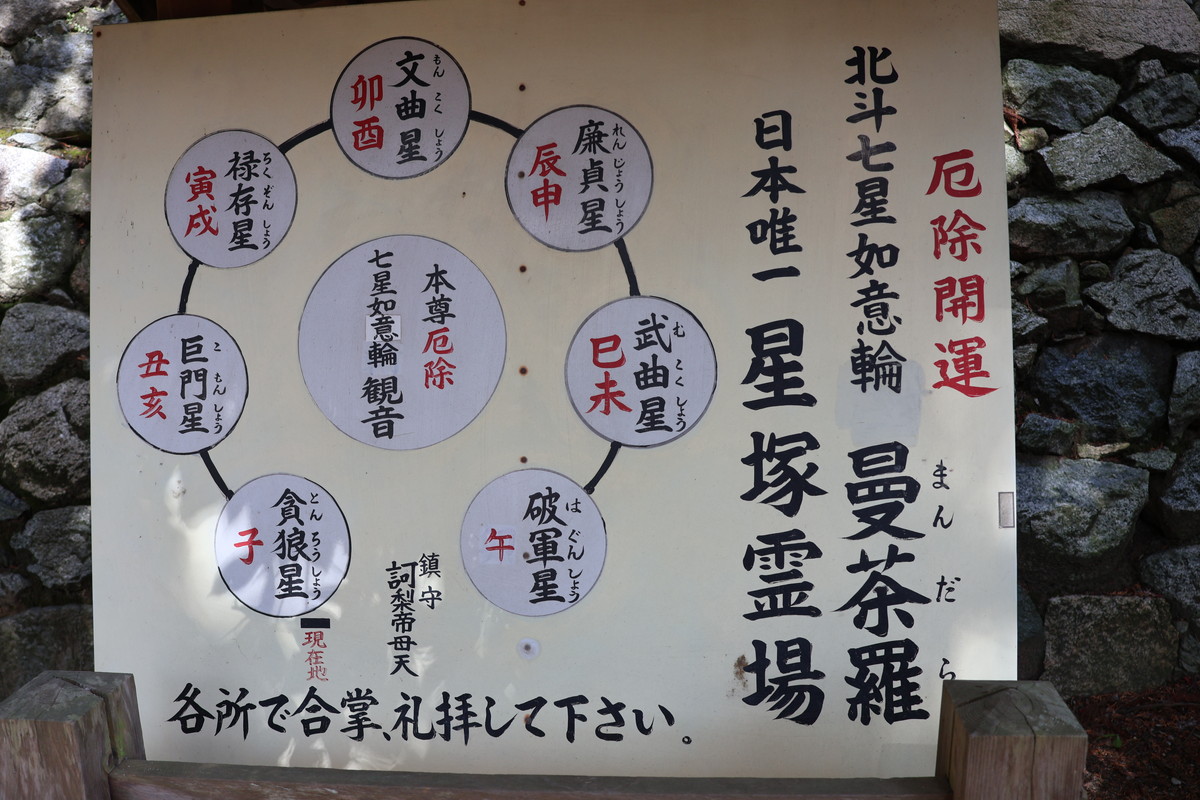 厄除開運
北斗七星如意輪 曼荼羅
まんだら
日本唯一 星塚霊場
廉貞星
れんじょうしょう
辰申
文曲星
もんこくしょう
卯酉
禄存星
ろくぞんしょう
寅戌
武曲星
むこくしょう
巳未
本尊厄除
七星如意輪観音
巨門星
こもんしょう
丑亥
破軍星
はぐんしょう
午
貪狼星
とんろうしょう
子
現在地
鎮守
訶梨帝母天
各所で合掌、礼拝して下さい。